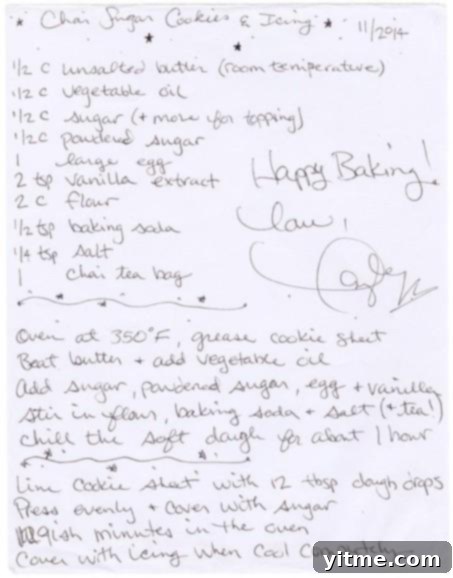 Chai Sugar Cookies & Icing
11/2014
1/2 c unsalted butter (room temperature)
1/2 c vegetable oil
1/2 c sugar (+ more for topping)
1/2 c powdered sugar
1 large egg
2 tsp vanilla extract
2 c flour
1/2 tsp baking soda
1/4 tsp salt
1 chai tea bag
Happy Baking!
Love,
Oven at 350°F, grease cookie sheet
Beat butter + add vegetable oil
Add sugar, powdered sugar, egg + vanilla
Stir in flour, baking soda + salt (+ tea!)
Chill the soft dough for about 1 hour
Line cookie sheet with 12 tbsp dough drops
Press evenly + cover with sugar
9ish minutes in the oven
Cover with icing when cool
yitme.com